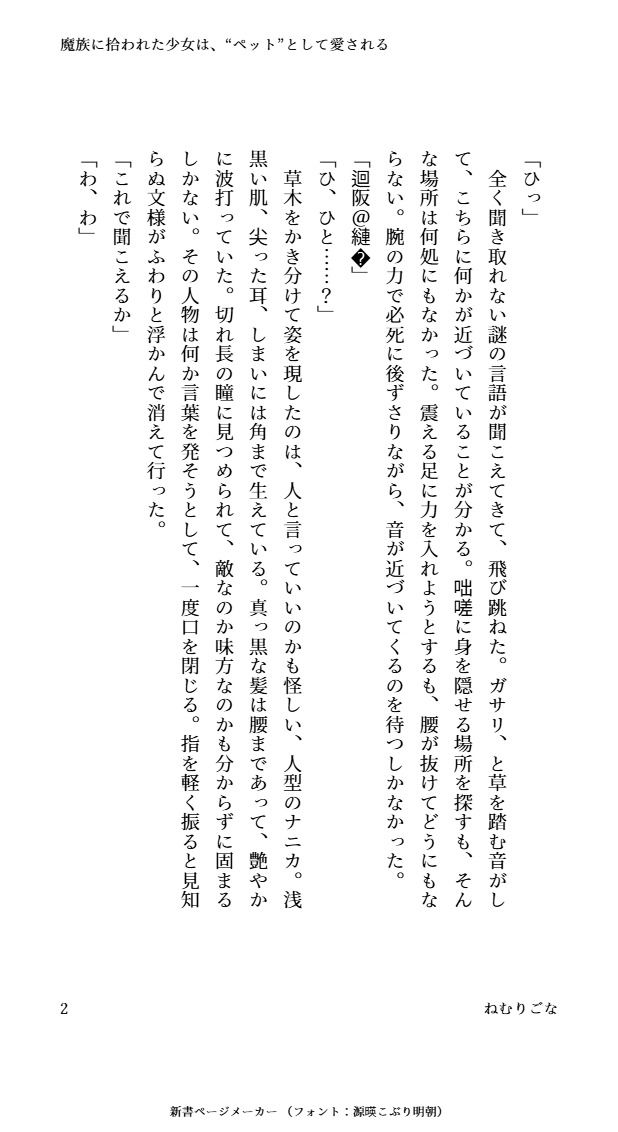 魔族に拾われた少女は、“ペット”として愛される
「ひっ」
　全く聞き取れない謎の言語が聞こえてきて、飛び跳ねた。ガサリ、と草を踏む音がし
て、こちらに何かが近づいていることが分かる。咄嗟に身を隠せる場所を探すも、そん
な場所は何処にもなかった。震える足に力を入れようとするも、腰が抜けてどうにもな
らない。腕の力で必死に後ずさりながら、音が近づいてくるのを待つしかなかった。
「迴阪＠縺�」
「ひ、ひと……？」
　草木をかき分けて姿を現したのは、人と言っていいのかも怪しい、人型のナニカ。浅
黒い肌、尖った耳、しまいには角まで生えている。真っ黒な髪は腰まであって、艶やか
に波打っていた。切れ長の瞳に見つめられて、敵なのか味方なのかも分からずに固まる
しかない。その人物は何か言葉を発そうとして、一度口を閉じる。指を軽く振ると見知
らぬ文様がふわりと浮かんで消えて行った。
「これで聞こえるか」
「わ、わ」
2
ねむりごな
新書ページメーカー（フォント：源暎こぶり明朝）